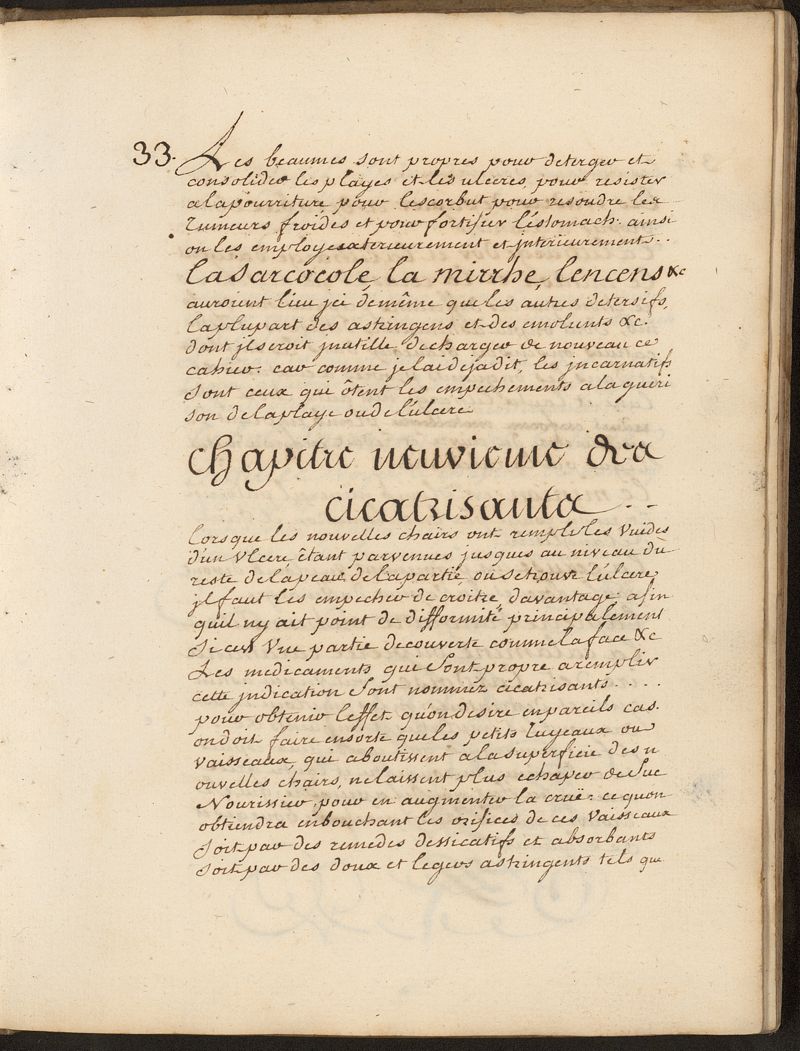 33. Les beaumes sont propres pour deterger et
consolider les playes et les ulceres, pour resister
a la pourriture pour lescorbut pour resoudre les
tumeurs froides et pour fortifier léstomach. ainsi
on les employe exterieurement et jnterieurement..
la Sarcocole, la mirrhe, lencens &c
auroient lieu jci de même que les autres detersifs,
la plupart des astringens et des emolients &c.
dont jl seroit jnutille de charger de nouveau ce
cahier: car comme je lai deja dit, les jncarnatifs
Sont ceux qui ôtent les empechements a la gueri
son de la playe ou de lulcere
chapitre neuvieme des
cicatrisants..
lorsque les nouvelles chairs ont rempli les Vuides
d'un Vlcere êtant parvenues jusques au niveau du
reste de la peau de la partie ou se trouve lulcere,
jl faut les empecher de croitre davantage, afin
quil ny ait point de difformité principalement
Si cest Vne partie decouverte comme la face &c
Les medicaments qui Sont propre a remplir
cette jndication Sont nommez cicatrisants....
pour obtenir leffet qu'on desire en pareils cas.
on doit faire ensorte que les petits tuyeaux ou
vaisseaux, qui aboutissent a la superficie des n
ouvelles chairs, ne laissent plus echaper de Suc
Nourissier, pour en augmenter la cruë: ce quon
obtiendra en bouchant les orifices de ces Vaisseaux
Soit par des remedes dessicatifs et absorbants
Soit par des doux et legers astringents tels que